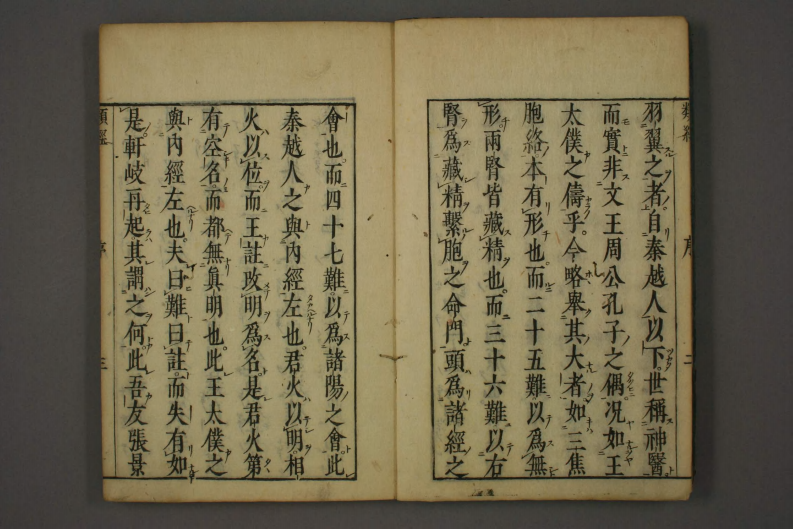 類經
序
二
羽翼之者自秦越人以下世稱神醫
而實非文王周公孔子之偶况如王
太僕之儔乎今略舉其大者如三焦
胞絡本有形也而二十五難以為無
形兩腎皆藏精也而三十六難以右
腎為藏精繫胞之命門頭為諸經之
會也而四十七難以為諸陽之會此
秦越人之與內經左也君火以明相
火以位而王註改明為名是君火第
有空名而都無眞明也此王太僕之
與內經左也夫曰難曰註而失有如
是軒岐再起其謂之何此吾友張景
類經
序
三